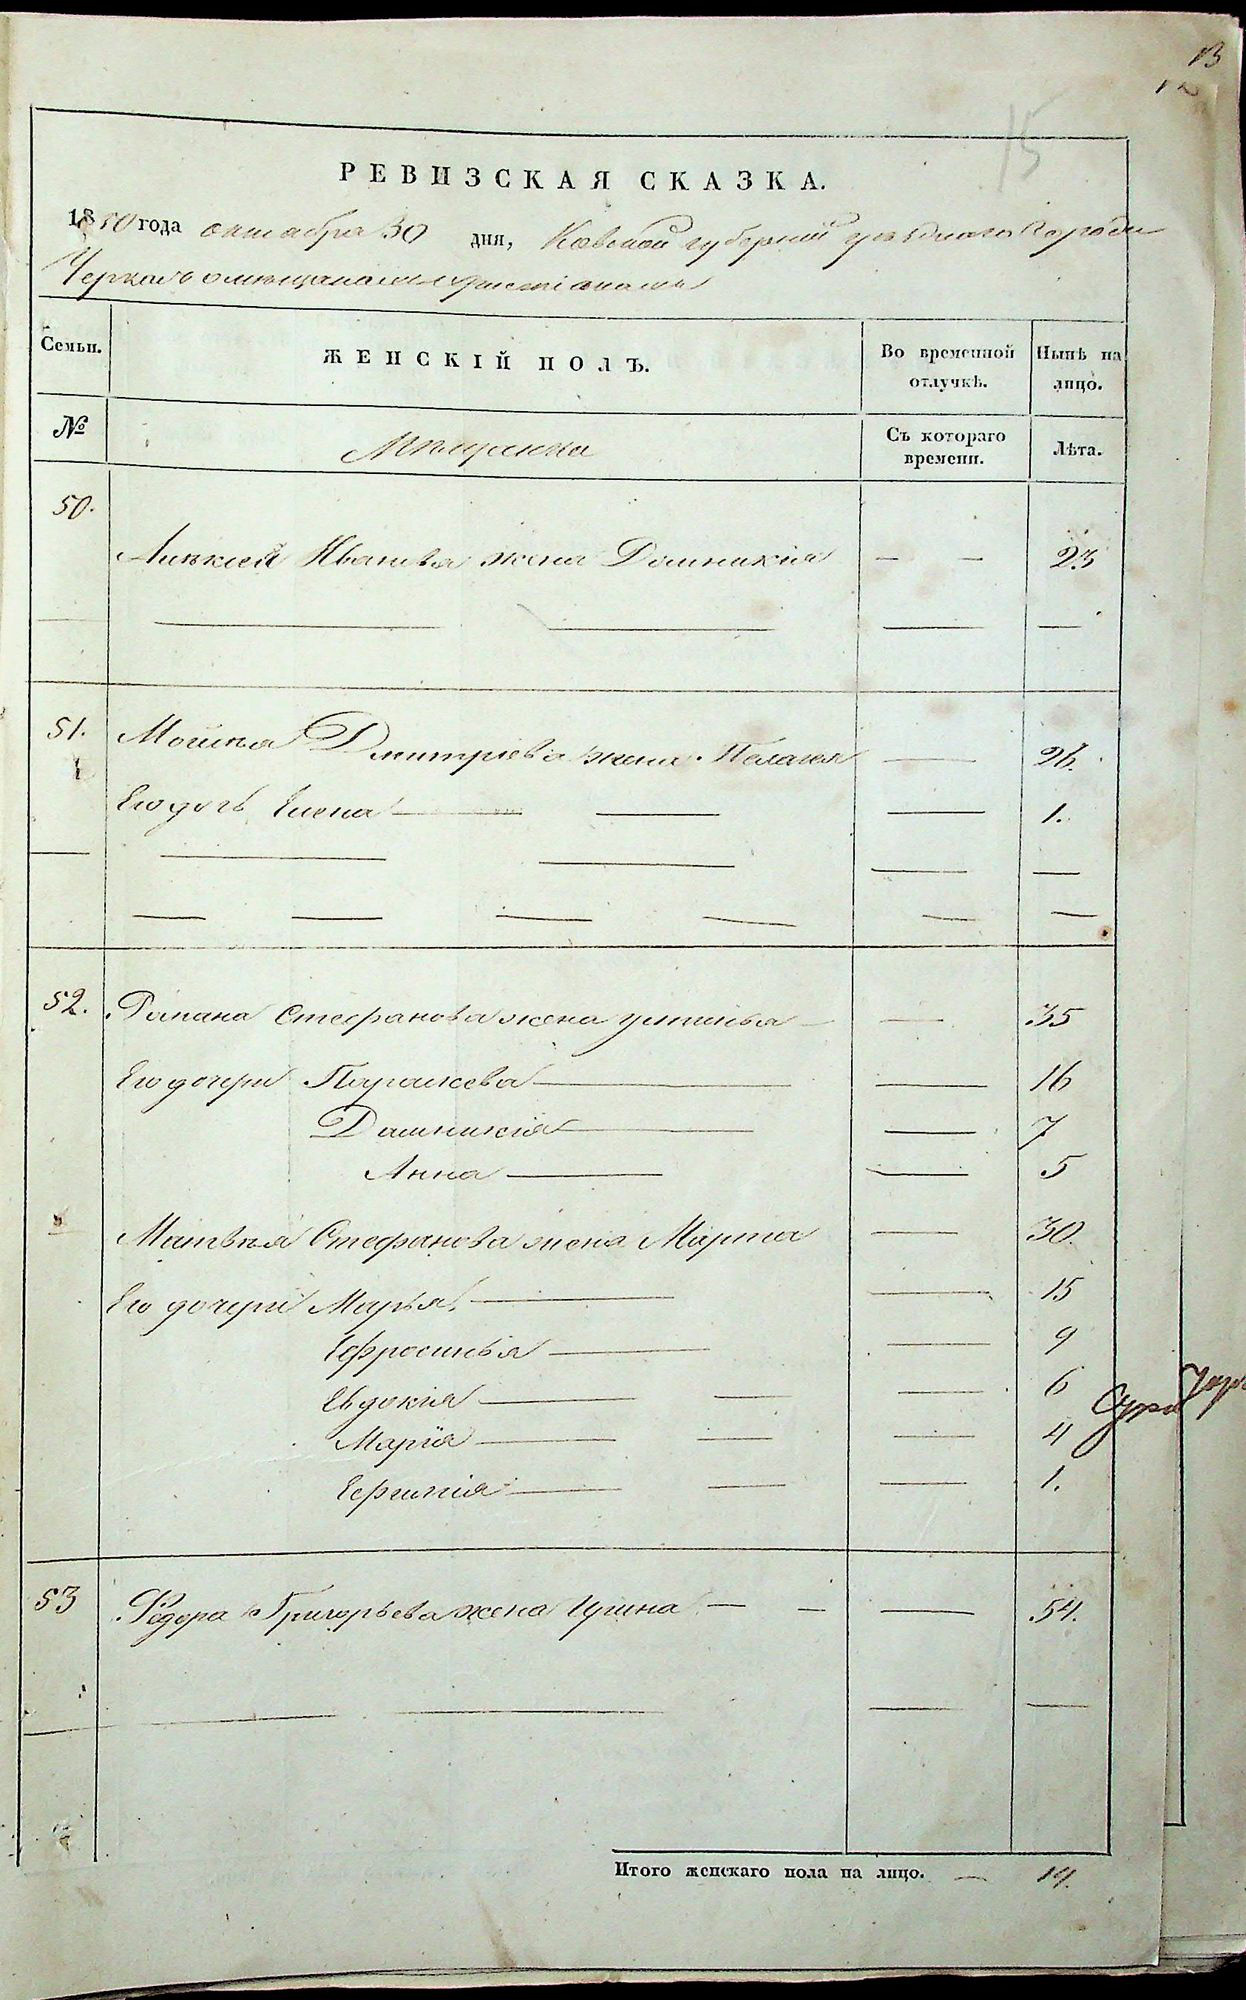 13
15
РЕВИЗСКАЯ СКАЗКА.
1850 года октября 30 дня, Киевской губернии уезднаго города
Черкас о мещанах христианах
Семьи. ЖЕНСКІЙ ПОЛЪ. Во временной отлучкѣ. Нынѣ на лицо.
№ Мещанки Съ котораго времени. Лѣта.
50.
Алексея Иванова жена Домникия — — 23
51. Моисея Дмитриева жена Пелагея — 26.
Его дочь Елена — 1.
52. Романа Стефанова жена Устинья — 35
Его дочери Параскева — 16
Домникия — 7
Анна — 5
Матвея Стефанова жена Марфа — 30.
Его дочери Марья — 15
Ефросинья — 9
Евдокия — 6
Мария — 4
Ефимия — 1.
53 Федора Григорьева жена Ирина — — — 54.
Итого женскаго пола на лицо. — 14.